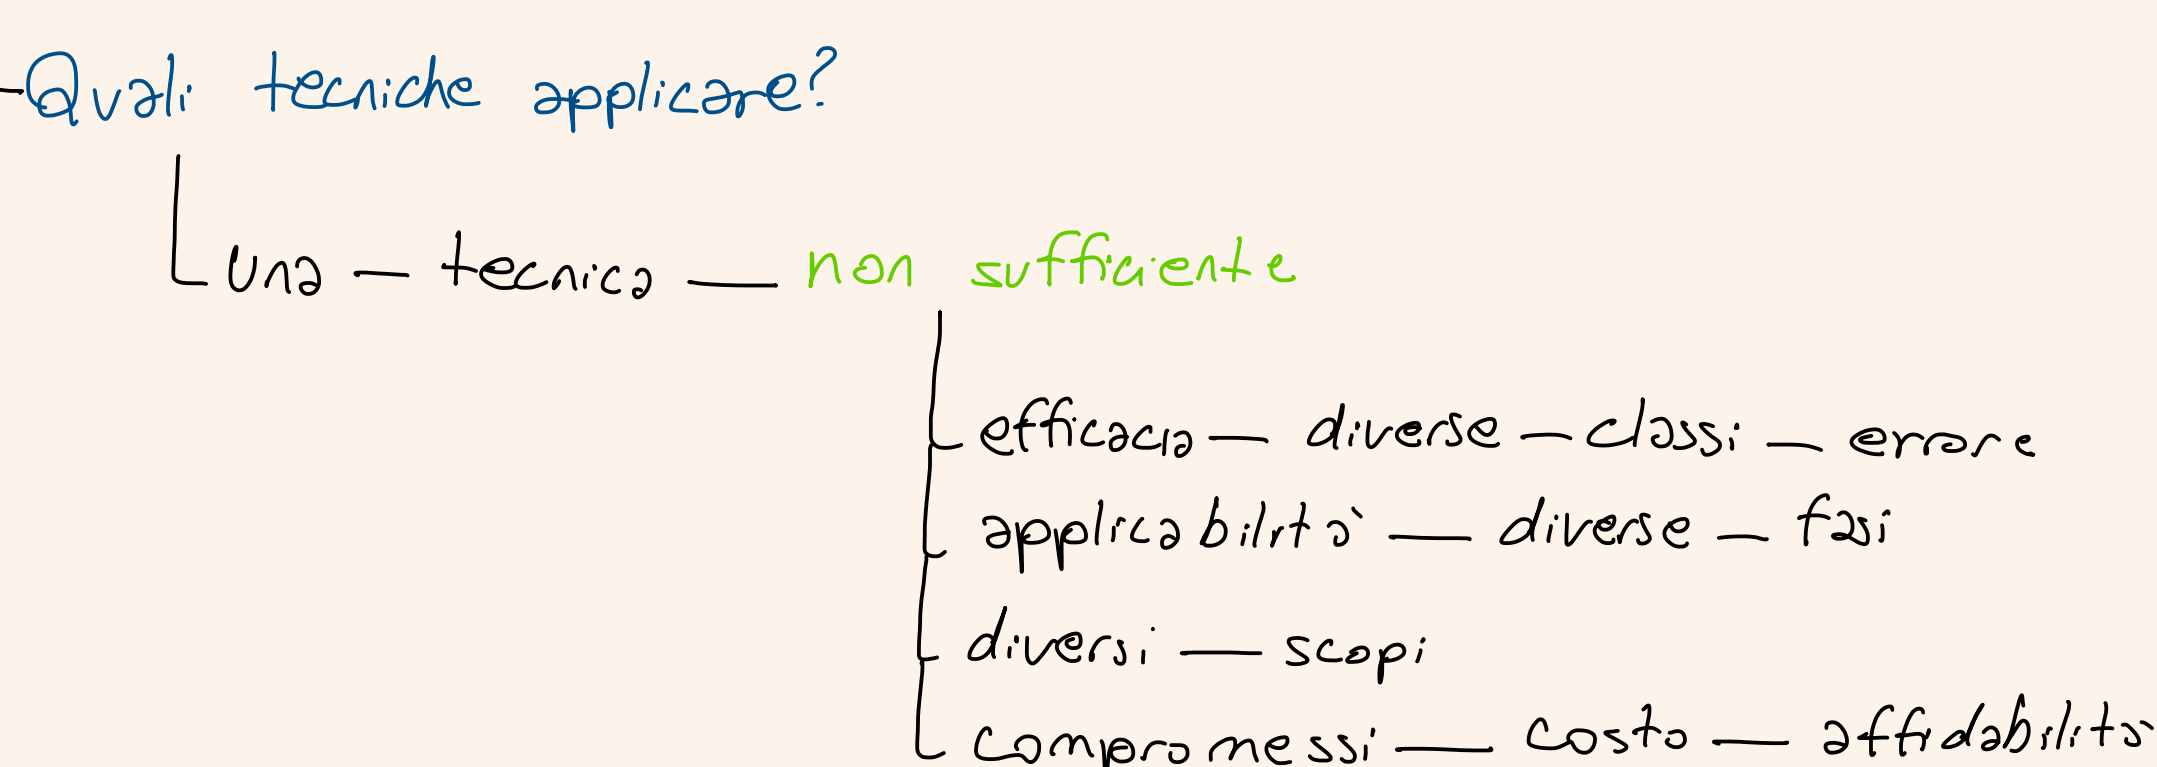 Quali tecniche applicare?
una — tecnica — non sufficiente
efficacia — diverse — classi — errore
applicabilità — diverse — fasi
diversi — scopi
compromessi — costo — affidabilità